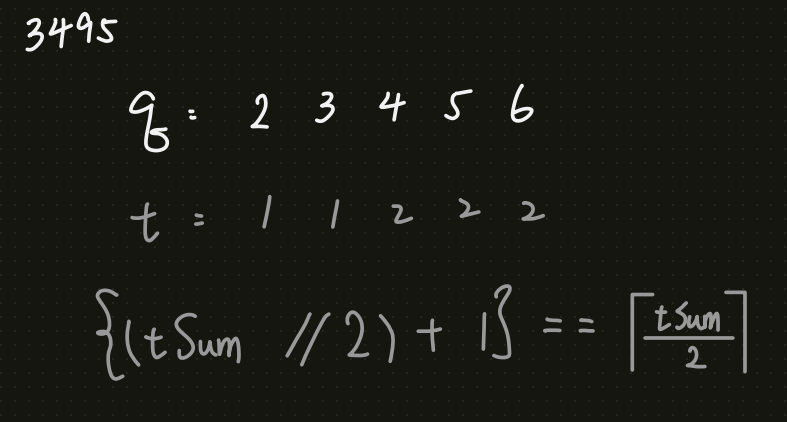 3495
q : 2 3 4 5 6
t = 1 1 2 2 2
{(tSum // 2) + 1} == ⌈tSum/2⌉